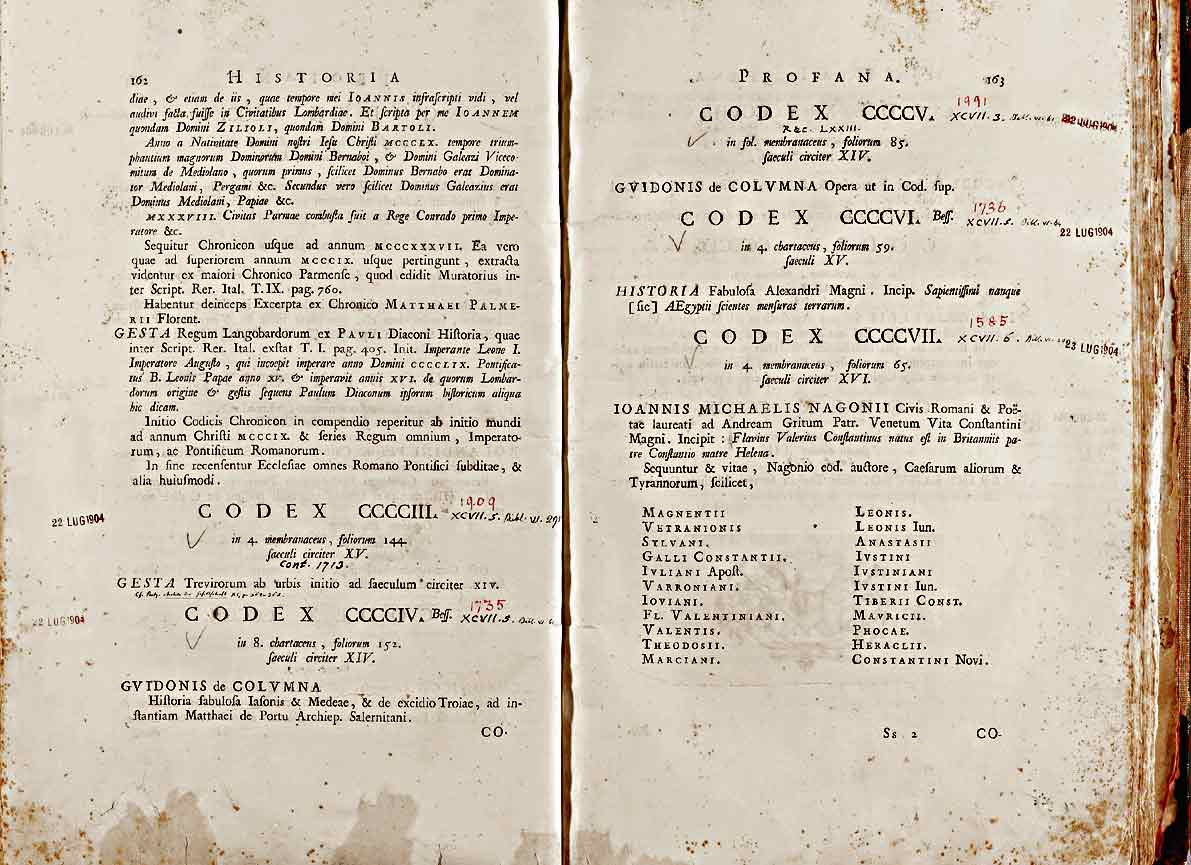 162 HISTORIA
diae, & etiam de iis, quae tempore mei IOANNIS infrascripti vidi, vel
audivi facta fuisse in Civitatibus Lombardiae. Et scripta per me IOANNEM
quondam Domini ZILIOLI, quondam Domini BARTOLI.
Anno a Nativitate Domini nostri Iesu Christi MCCCLX. tempore trium-
phantium magnorum Dominorum Domini Bernaboi, & Domini Galeazi Viceco-
mitum de Mediolano, quorum primus, scilicet Dominus Bernabo erat Domina-
tor Mediolani, Pergami &c. Secundus vero scilicet Dominus Galeazius erat
Dominus Mediolani, Papiae &c.
MXXXVIII. Civitas Parmae combusta fuit a Rege Conrado primo Impe-
ratore &c.
Sequitur Chronicon usque ad annum MCCCXXXVII. Ea vero
quae ad superiorem annum MCCCIX. usque pertingunt, extracta
videntur ex maiori Chronico Parmense, quod edidit Muratorius in-
ter Script. Rer. Ital. T.IX. pag. 760.
Habentur deinceps Excerpta ex Chronico MATTHAEI PALME-
RII Florent.
GESTA Regum Langobardorum ex PAVLI Diaconi Historia, quae
inter Script. Rer. Ital. exstat T. I. pag. 405. Init. Imperante Leone I.
Imperatore Augusto, qui incoepit imperare anno Domini CCCCLIX. Pontifica-
tus B. Leonis Papae anno XV. & imperavit annis XVI. de quorum Lombar-
dorum origine & gestis sequens Paulum Diaconum ipsorum historicum aliqua
hic dicam.
Initio Codicis Chronicon in compendio reperitur ab initio mundi
ad annum Christi MCCCIX. & series Regum omnium, Imperato-
rum, ac Pontificum Romanorum.
In fine recensentur Ecclesiae omnes Romano Pontifici subditae, &
alia huiusmodi.
1909
22 LUG 1904 CODEX CCCCIII. XCVII. 5.
in 4. membranaceus, foliorum 144.
saeculi circiter XV.
Cont. 1713.
GESTA Trevirorum ab urbis initio ad saeculum circiter XIV.
1735
22 LUG 1904 CODEX CCCCIV. Bess. XCVII. 5.
in 8. chartaceus, foliorum 152.
saeculi circiter XIV.
GVIDONIS de COLVMNA
Historia fabulosa Iasonis & Medeae, & de excidio Troiae, ad in-
stantiam Matthaei de Portu Archiep. Salernitani.
CO-
PROFANA. 163
1991
CODEX CCCCV. XCVII. 3. 22 LUG 1904
R&c. LXXIII.
in fol. membranaceus, foliorum 85.
saeculi circiter XIV.
GVIDONIS de COLVMNA Opera ut in Cod. sup.
1736
CODEX CCCCVI. Bess. XCVII. 5.
22 LUG 1904
in 4. chartaceus, foliorum 59.
saeculi XV.
HISTORIA Fabulosa Alexandri Magni. Incip. Sapientissimi nanque
[sic] AEgyptii scientes mensuras terrarum.
1585
CODEX CCCCVII. XCVII. 6. 23 LUG 1904
in 4. membranaceus, foliorum 65.
saeculi circiter XVI.
IOANNIS MICHAELIS NAGONII Civis Romani & Poë-
tae laureati ad Andream Gritum Patr. Venetum Vita Constantini
Magni. Incipit: Flavius Valerius Constantinus natus est in Britanniis pa-
tre Constantio matre Helena.
Sequuntur & vitae, Nagonio eod. auctore, Caesarum aliorum &
Tyrannorum, scilicet,
MAGNENTII
VETRANIONIS
SYLVANI.
GALLI CONSTANTII.
IVLIANI Apost.
VARRONIANI.
IOVIANI.
FL. VALENTINIANI.
VALENTIS.
THEODOSII.
MARCIANI.
LEONIS.
LEONIS Iun.
ANASTASII
IVSTINI
IVSTINIANI
IVSTINI Iun.
TIBERII CONST.
MAVRICII.
PHOCAE.
HERACLII.
CONSTANTINI Novi.
Ss 2 CO-